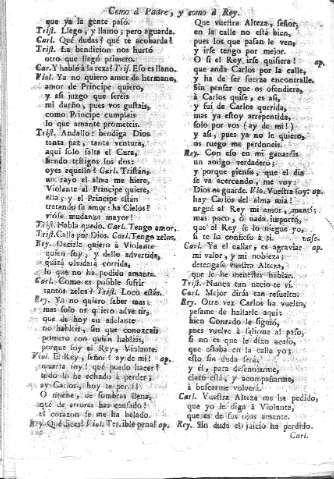 Como à Padre, y como à Rey.
que ya la gente pasó.
Trist. Llego, y llamo; pero aguarda.
Carl. Què dudas? què te acobarda?
Trist. La bendicion nos hurtò
otro que llegò primero.
Car. Y hablò à la reja? Trist. Eso es llano.
Viol. Ya no quiero amor de hermano,
amor de Principe quiero,
y asi juzgo que serèis
mi dueño, pues vos gustais,
como Principe cumplais
lo que amante prometeis.
Trist. Andallo: bendiga Dios
tanta paz, tanta ventura,
aqui solo falta el Cura,
siendo testigos los dos:
oyes aquello? Carl. Tristán,
un rayo el alma me hiere,
Violante al Principe quiere,
ella y el Principe estàn
tratando su amor: ha Cielos!
viòse mudanza mayor!
Trist. Habla quedo. Carl. Tengo amor.
Trist. Calla por Dios. Carl. Tengo zelos.
Rey. Decirla quiero à Violante
quien soy, y dello advertida,
quizà olvidarà corrida,
lo que no ha podido amante.
Carl. Como es posible sufrir
tantos zelos? Trist. Loco estàs.
Rey. Ya no quiero saber mas;
mas solo os quiero advertir,
que de hoy en adelante
no hableis, sin que conozcais
primero con quien hablais,
porque soy el Rey, Violante.
Viol. El Rey, señor? ay de mi! ap.
muerta soy! què puedo hacer?
todo lo he echado à perder;
ay Carlos, hoy te perdì!
O noche, de sombras llena,
què de errores has causado!
el corazon se me ha helado.
Rey. Què decis? Viol. Terrible pena! ap.
Que vuestra Alteza, señor,
en la calle no està bien,
pues los que pasan le ven,
y irse tengo por mejor.
O si el Rey irse quisiera! ap.
que anda Carlos por la calle,
y ha de ser fuerza encontralle.
Sin pensar que os ofendiera,
à Carlos quise, es asi,
y fui de Carlos querida,
mas ya estoy arrepentida,
solo por vos (ay de mi!)
y asi, pues ya no le quiero,
os ruego me perdoneis.
Rey. Con eso en mi ganareis
un amigo verdadero;
y porque pienso, que el dia
se va acercando, me voy:
Dios os guarde. Viol. Vuestra soy: ap.
hay Carlos del alma mia!
neguè al Rey mi amor,
mas poco, ò nada importò,
que al Rey se lo niegue yo,
si te lo confieso à ti. vase.
Carl. Ya el callar, es agraviar ap.
mi valor, y mi nobleza;
detengase vuestra Alteza,
que le he menester hablar.
Trist. Nunca can nacio te vi.
Carl. Mejor diràs tan resuelto.
Rey. Otra vez Carlos ha vuelto,
pesame de hallarle aqui:
bien Conrado le siguiò,
pues vuelve à salirme al paso,
si no es que le dixo acaso,
que estaba en la calle yo;
esto sin duda serà,
y èl, para desenojarme,
claro està, y acompañarme,
à buscarme volverà.
Carl. Vuestra Alteza me ha pedido,
que yo le diga à Violante,
que es de sus ojos amante.
Rey. Sin duda el juicio ha perdido.
Carl.